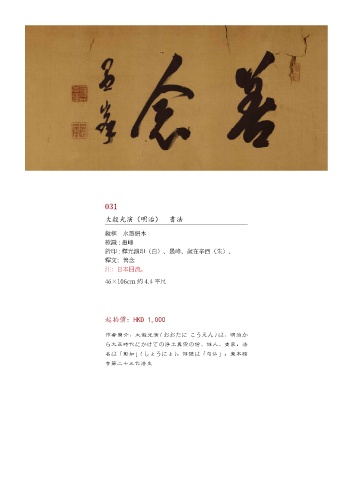 善念
愚峯
031
大谷光演（明治） 書法
鏡框 水墨絹本
款識：愚峰
鈐印：釋光演印（白）、愚峰、歲在辛酉（朱）。
釋文：善念
注：日本回流。
46×106cm 約 4.4 平尺
起拍價：HKD 1,000
作者簡介：大谷光演（おおたに こうえん）は、明治か
ら大正時代にかけての浄土真宗の僧、俳人、画家。法
名は「彰如」（しょうにょ）。俳號は「句仏」。東本願
寺第二十三代法主